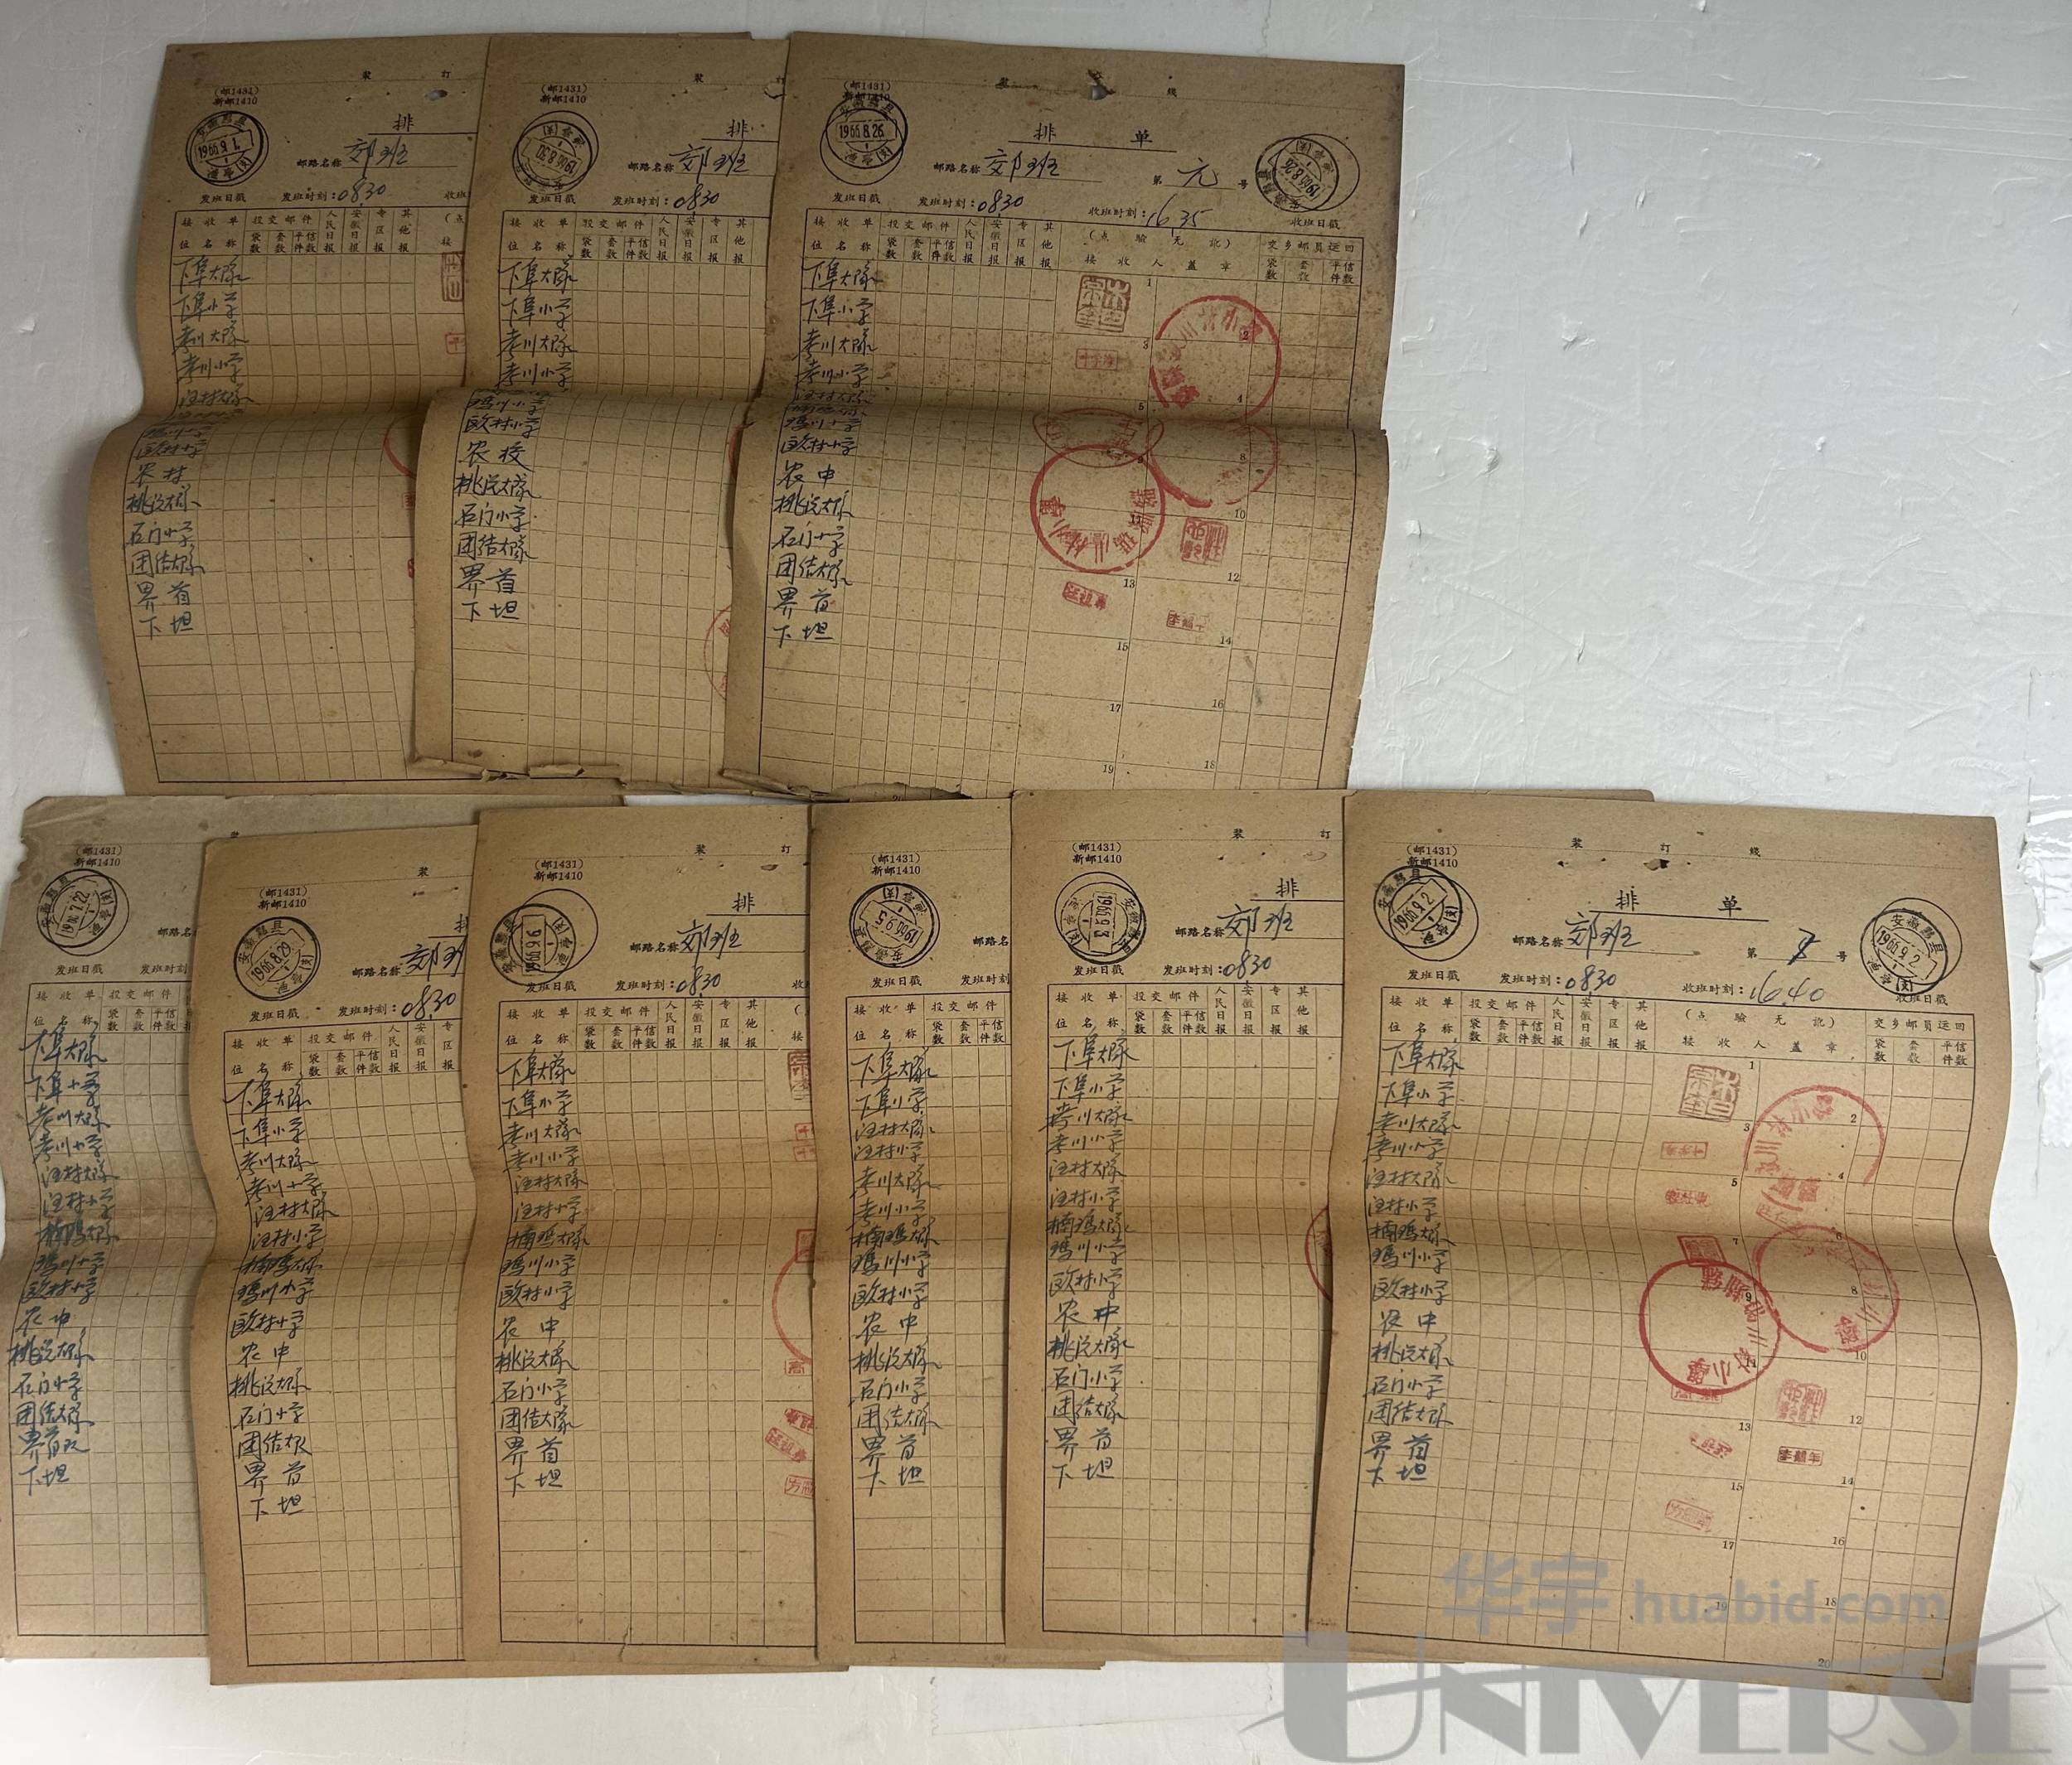 装 订
(邮1431)
新邮1410
排
邮路名称 郊班
1966.9.1
发班日戳 发班时刻:0830 收班
接收单位名称 投交邮件 袋数 套数 平信件数 人民日报 安徽日报 专区报 其他报
下阜大隊
下阜小学
考川大隊
考川小学
汪村大隊
瑪川小学
欧村小学
桃汶大隊
石门小学
团结大隊
界首
下坦
装 订
(邮1431)
新邮1410
排
邮路名称 郊班
1966.8.30
发班日戳 发班时刻:0830
接收单位名称 投交邮件 袋数 套数 平信件数 人民日报 安徽日报 专区报 其他报
下阜大隊
下阜小学
考川大隊
考川小学
瑪川小学
欧村小学
农校
桃汶大隊
石门小学
团结大隊
界首
下坦
装 订 线
(邮1431)
新邮1410
安徽黟县
1966.8.26
排 单
邮路名称 郊班 第 元 号
1966.8.26
发班日戳 发班时刻:0830 收班时刻:16.35 收班日戳
接收单位名称 投交邮件 袋数 套数 平信件数 人民日报 安徽日报 专区报 其他报 (点验无讹) 接收人盖章 交乡邮员运回 袋数 套数 平信件数
下阜大隊 1
下阜小学 2
考川大隊 3
考川小学 4
汪村大隊 5
瑪川小学
欧村小学 8
农中 9
桃汶大隊 10
石门小学
团结大隊 12
界首 13
下坦 14
15
16
17
18
19
20
(邮1431)
新邮1410
安徽黟县
1966.7.22
邮路名
发班日戳 发班时刻
接收单位名称 投交邮件 袋数 套数 平信件数
下阜大隊
下阜小学
考川大隊
考川小学
汪村大隊
汪村小学
楠瑪大隊
瑪川小学
欧村小学
农中
桃汶大隊
石门小学
团结大隊
界首
下坦
装
(邮1431)
新邮1410
安徽黟县
1966.8.29
邮路名称 郊班
发班日戳 发班时刻:0830
接收单位名称 投交邮件 袋数 套数 平信件数 人民日报 安徽日报 专区报
下阜大隊
下阜小学
考川大隊
考川小学
汪村大隊
汪村小学
楠瑪大隊
瑪川小学
欧村小学
农中
桃汶大隊
石门小学
团结大队
界首
下坦
装 订
(邮1431)
新邮1410
排
邮路名称 郊班
1966.9.6
发班日戳 发班时刻:0830
接收单位名称 投交邮件 袋数 套数 平信件数 人民日报 安徽日报 专区报 其他报
下阜大隊
下阜小学
考川大隊
考川小学
汪村大隊
汪村小学
楠瑪大隊
瑪川小学
欧村小学
农中
桃汶大隊
石门小学
团结大隊
界首
下坦
(邮1431)
新邮1410
1966.9.5
邮路名
发班日戳 发班时刻
接收单位名称 投交邮件 袋数 套数 平信件数
下阜大隊
下阜小学
汪村大隊
汪村小学
考川大隊
考川小学
楠瑪大隊
瑪川小学
欧村小学
农中
桃汶大隊
石门小学
团结大隊
界首
下坦
装 订
(邮1431)
新邮1410
排
邮路名称 郊班
1966.9.3
发班日戳 发班时刻:0830
接收单位名称 投交邮件 袋数 套数 平信件数 人民日报 安徽日报 专区报 其他报
下阜大隊
下阜小学
考川大隊
考川小学
汪村大隊
汪村小学
楠瑪大隊
瑪川小学
欧村小学
农中
桃汶大隊
石门小学
团结大隊
界首
下坦
装 订 线
(邮1431)
新邮1410
安徽黟县
1966.9.2
排 单
邮路名称 郊班 第 8 号
安徽黟县
1966.9.2
发班日戳 发班时刻:0830 收班时刻:16.40 收班日戳
接收单位名称 投交邮件 袋数 套数 平信件数 人民日报 安徽日报 专区报 其他报 (点验无讹) 接收人盖章 交乡邮员运回 袋数 套数 平信件数
下阜大隊 1
下阜小学 2
考川大隊 3
考川小学 4
汪村大隊 5
汪村小学 6
楠瑪大隊 7
瑪川小学 8
欧村小学 9
农中 10
桃汶大隊 11
石门小学 12
团结大隊 13
界首 14
下坦 15
16
17
18
19
20
华宇 huabid.com
UNIVERSE